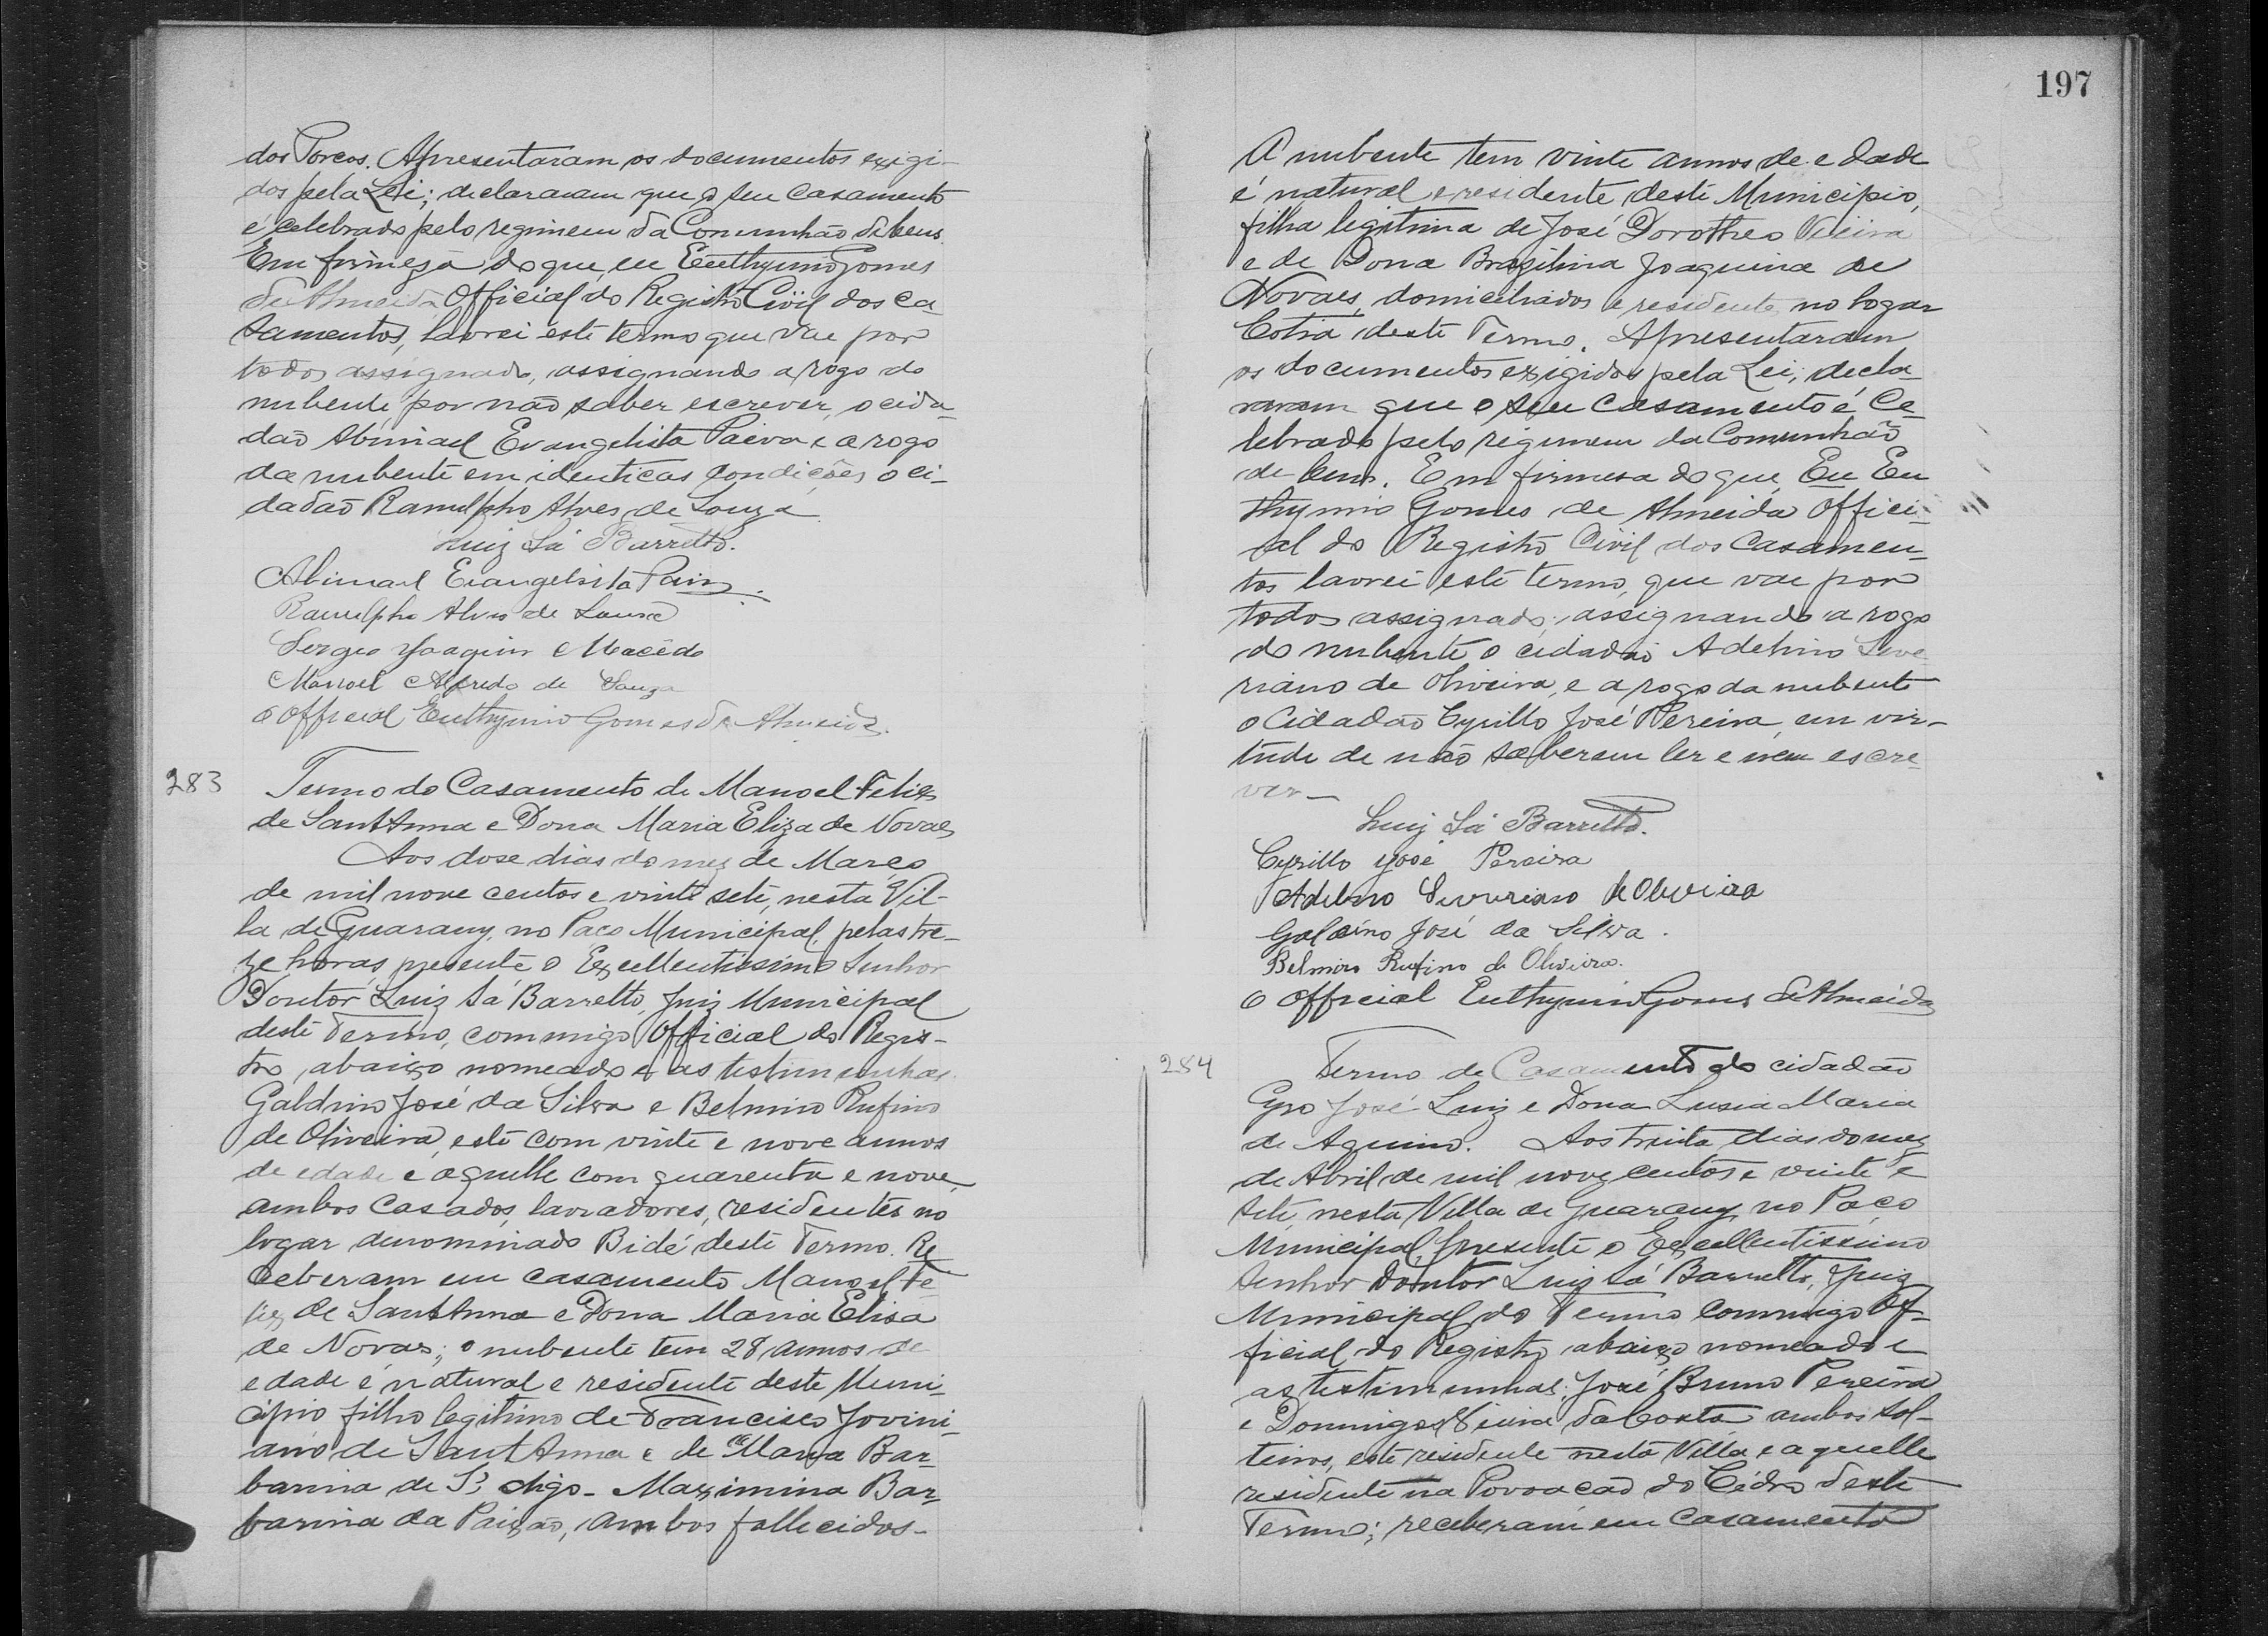 dos Porcos. Apresentaram os documentos exigi-
dos pela Lei; declararam que o seu casamento
é celebrado pelo regimem da Comunhão de bens.
Em firmeza do que, eu Euthymio Gomes
de Almeida Official do Registro Civil dos ca-
samentos, lavrei este termo que vae por
todos assignado, assignando a rogo do
nubente por não saber escrever, o cida-
dão Abimael Evangelista Paiva e a rogo
da nubente em identicas condições o ci-
dadão Ranulpho Alves de Souza
Luiz Sá Barretto.
Abimael Evangelista Paiva
Ranulpho Alves de Souza
Sergio Joaquim Macêdo
Manoel Alfredo de Souza
O Official Euthymio Gomes de Almeida.
283 Termo do Casamento de Manoel Felix
de Sant'Anna e Dona Maria Eliza de Novaes
Aos dose dias do mez de Março
de mil nove centos e vinte sete, nesta Vil-
la de Guarany, no Paço Municipal, pelas tre-
ze horas, presente o Excellentissimo Senhor
Doutor Luiz Sá Barretto, Juiz Municipal
deste Termo, commigo Official do Regis-
tro, abaixo nomeado e as testimunhas
Galdino José da Silva e Belmiro Rufino
de Oliveira, este com vinte e nove annos
de edade e aquelle com quarenta e nove,
ambos casados, lavradores, residentes no
logar denominado Bidé deste Termo. Re
ceberam em casamento Manoel Fe-
lix de Sant'Anna e Dona Maria Elisa
de Novaes; o nubente tem 28 annos de
edade é natural e residente deste Muni-
cipio filho legitimo de Francisco Jovini-
ano de Sant'Anna e de Maria Bar-
barina de S. digo - Maximina Bar-
barina da Paixão, ambos fallecidos-
197
A nubente tem vinte annos de edade
é natural e residente deste Municipio,
filha legitima de José Dorotheo Vieira
e de Dona Brazilina Joaquina de
Novaes, domiciliados e residente no logar
Cotia deste Termo. Apresentaram
os documentos exigidos pela Lei; decla-
raram que o seu casamento é ce-
lebrado pelo regimem da Comunhão
de bens. Em firmesa do que, Eu Eu
thymio Gomes de Almeida Offici-
al do Registro Civil dos Casamen-
tos lavrei este termo, que vae por
todos assignado; assignando a rogo
do nubente o cidadão Adelino Seve
riano de Oliveira, e a rogo da nubente
o Cidadão Cyrillo José Pereira, em vir-
tude de não saberem ler e nem escre-
ver-
Luiz Sá Barretto.
Cyrillo José Pereira
Adelino Severiano de Oliveira
Galdino José da Silva.
Belmiro Rufino de Oliveira.
O Official Euthymio Gomes de Almeida
284 Termo de Casamento do cidadão
Cyro José Luiz e Dona Lusia Maria
de Aquino. Aos trinta dias do mez
de Abril de mil nove centos e vinte e
sete, nesta Villa de Guarany no Paço
Municipal, presente o Excellentissimo
Senhor Doutor Luiz Sá Barretto, Juiz
Municipal do Termo commigo Of-
ficial do Registro abaixo nomeado e
as testimunhas: José Bruno Pereira
e Domingos Vieira da Costa ambos sol-
teiros, este residente nesta Villa e aquelle
residente na Povoação do Cédro deste
Termo; receberam em casamento